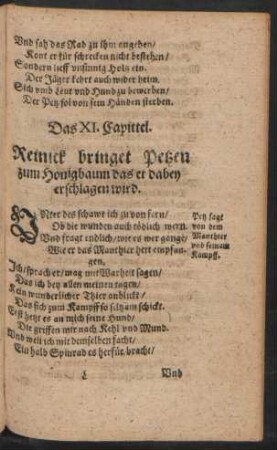 Vnd sah das Rad zu ihm angehen/
Kont er für schrecken nicht bestehen/
Sondern lieff vnsinnig Holtz ein.
Der Jäger kehrt auch wider heim.
Sich vmb Leut vnd Hund zu bewerben/
Der Petz sol von sein Händen sterben.
Das XI. Capittel.
Reinick bringet Petzen
zum Honigbaum das er dabey
erschlagen wird.
VNter des schawt ich zu von fern/
Ob die wunden auch tödlich wern.
Vnd fragt endlich/ wie es wer gangē/
Wie er das Manthier hett empfan-
gen.
Petz sagt
von dem
Manthier
vnd seinem
Kampff.
Ich/ sprach er/ mag mit Warheit sagen/
Das ich bey allen meinen tagen/
Kein wunderlicher Thier anblickt/
Das sich zum Kampff so seltzam schickt.
Erst hetzt es an mich seine Hund/
Die griffen mir nach Kehl vnd Mund.
Vnd weil ich mit demselben facht/
Ein halb Spinrad es herfür bracht/
L
Vnd